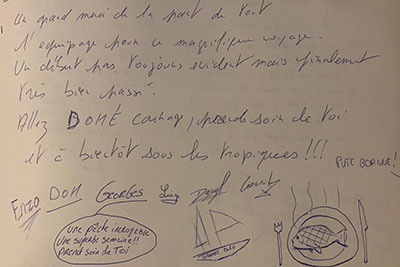 Un grand merci de la part de tout
l'équipage pour ce magnifique voyage.
Un début pas toujours évident mais finalement
très bien passé.
Allez BOMÉ courage, prends soin de toi
et à bientôt sous les tropiques !!!
PUTE BORGNE !
ENZO DOM GEORGES
une pêche incroyable
Une superbe semaine!!
prend soin de Toi